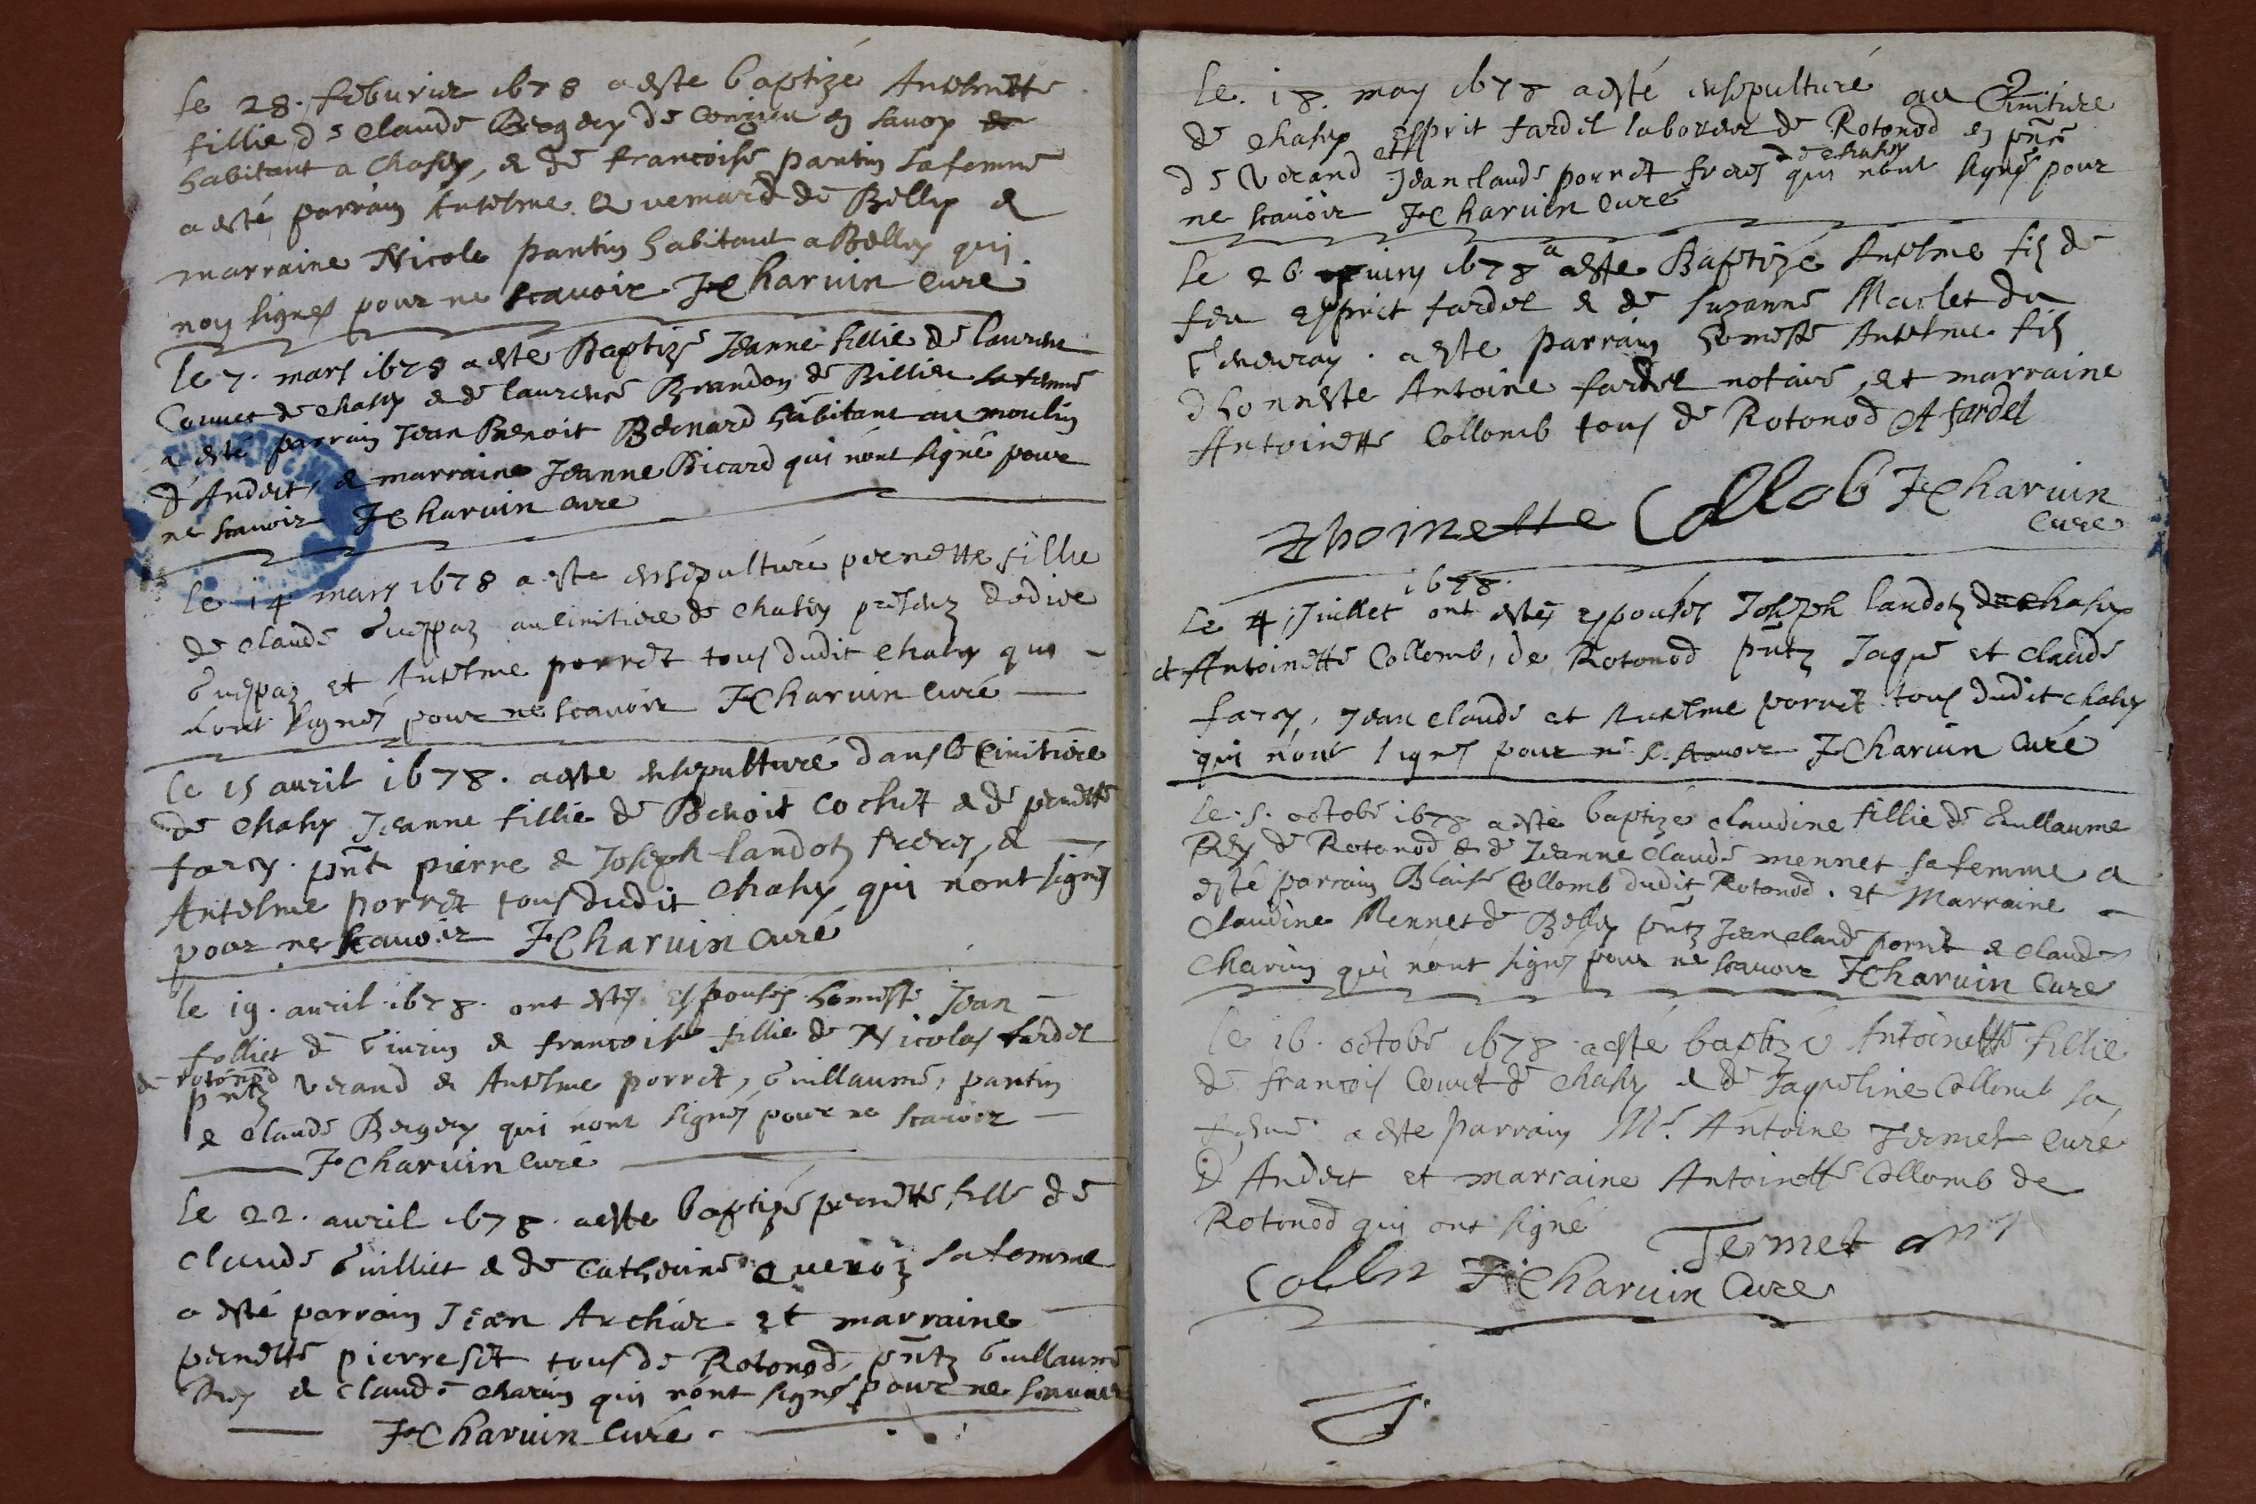 Le 28. feburier 1678 a este baptizé Antelmette
fillie de Claude Bergery de Conzieu en Savoy
habitant a Chasey, & de francoise pantin sa femme
a esté parrain Antelme Quemard de Belley &
marraine Nicole pantin habitant a Belley qui
non signes pour ne scavoir J Charvin Curé
Le 7. mars 1678 a este Baptizé Jeanne fillie de Laurent
Couuet de Chasey & de laurence Brandon de Billieu sa femme
a esté parrain Jean Benoit Bernard habitant au moulin
d'Andert, & marraine Jeanne Bicard qui n'ont signé pour
ne scavoir J Charvin Curé
Le 14 mars 1678 a este ensepulturé pernette fillie
de Claude Guespaz au Cimitiere de Chasey
Guespaz et Antelme porret tous dudit Chasey qui
n'ont signés pour ne scavoir J Charvin Curé
Le 15 avril 1678. a este ensepulturé dans le Cimitiere
de Chasey Jeanne fillie de Benoit Cochet & de pernette
farcy. pñt pierre & Joseph landoz freres, &
Antelme porret tous dudit Chasey qui n'ont signés
pour ne scavoir J Charvin Curé
le 19. avril 1678. ont estés espousés honneste Jean
folliet de & francoise fillie de Nicolas fardel
de rotonod
pñtz verand & Antelme porret, Guillaume, pantin
& Claude Bergery qui n'ont signés pour ne scavoir
J Charvin Curé
Le 22. avril 1678. a este baptizé pernette fille de
Claude Guilliet & de Catherine sa femme
a esté parrain Jean Archier et marraine
pernette pierreset tous de Rotonod, pñtz Guillaume
Rey & Claude Charvin qui n'ont signés pour ne scavoir
J Charvin Curé
Le. 18. may 1678 a esté ensepulturé au Cimitiere
de Chasey Esprit fardel laboureur de Rotonod en pñce
de Verand et Jean claude porret freres de Chasey qui n'ont signés pour
ne scavoir J Charvin Curé
Le 26 juin 1678 a este Baptizé Antelme fis de
feu Esprit fardel & de Suzanne Marlet du
a este parrain honneste Antelme fis
d'honneste Antoine fardel notaire, et marraine
Antoinette Collomb tous de Rotonod A fardel
Thoinette Collob J Charvin
Curé
1678.
Le 4 Juillet ont estés espousés Joseph landoz de Chasey
et Antoinette Collomb, de Rotonod pñtz Jaque et Claude
farcy, Jean claude et Antelme porret tous dudit Chasey
qui n'ont signés pour ne scavoir J Charvin Curé
Le. 5. octobe 1678 a esté baptizé Claudine fillie de Guillaume
Rey de Rotonod & de Jeanne Claude mennet sa femme a
esté parrain Blaise Collomb dudit Rotonod. et Marraine
Claudine Mennet de Belley pñtz Jean claude porret & Claude
Charvin qui n'ont signés pour ne scavoir J Charvin Curé
Le 16. octobe 1678 a esté baptizé Antoinette fillie
de francois Couuet de Chasey & de Jaqueline Collomb sa
feme a este parrain Mre. Antoine Jermet Curé
d'Andert et marraine Antoinette Collomb de
Rotonod qui ont signé
Jermet
Collin J Charvin Curé